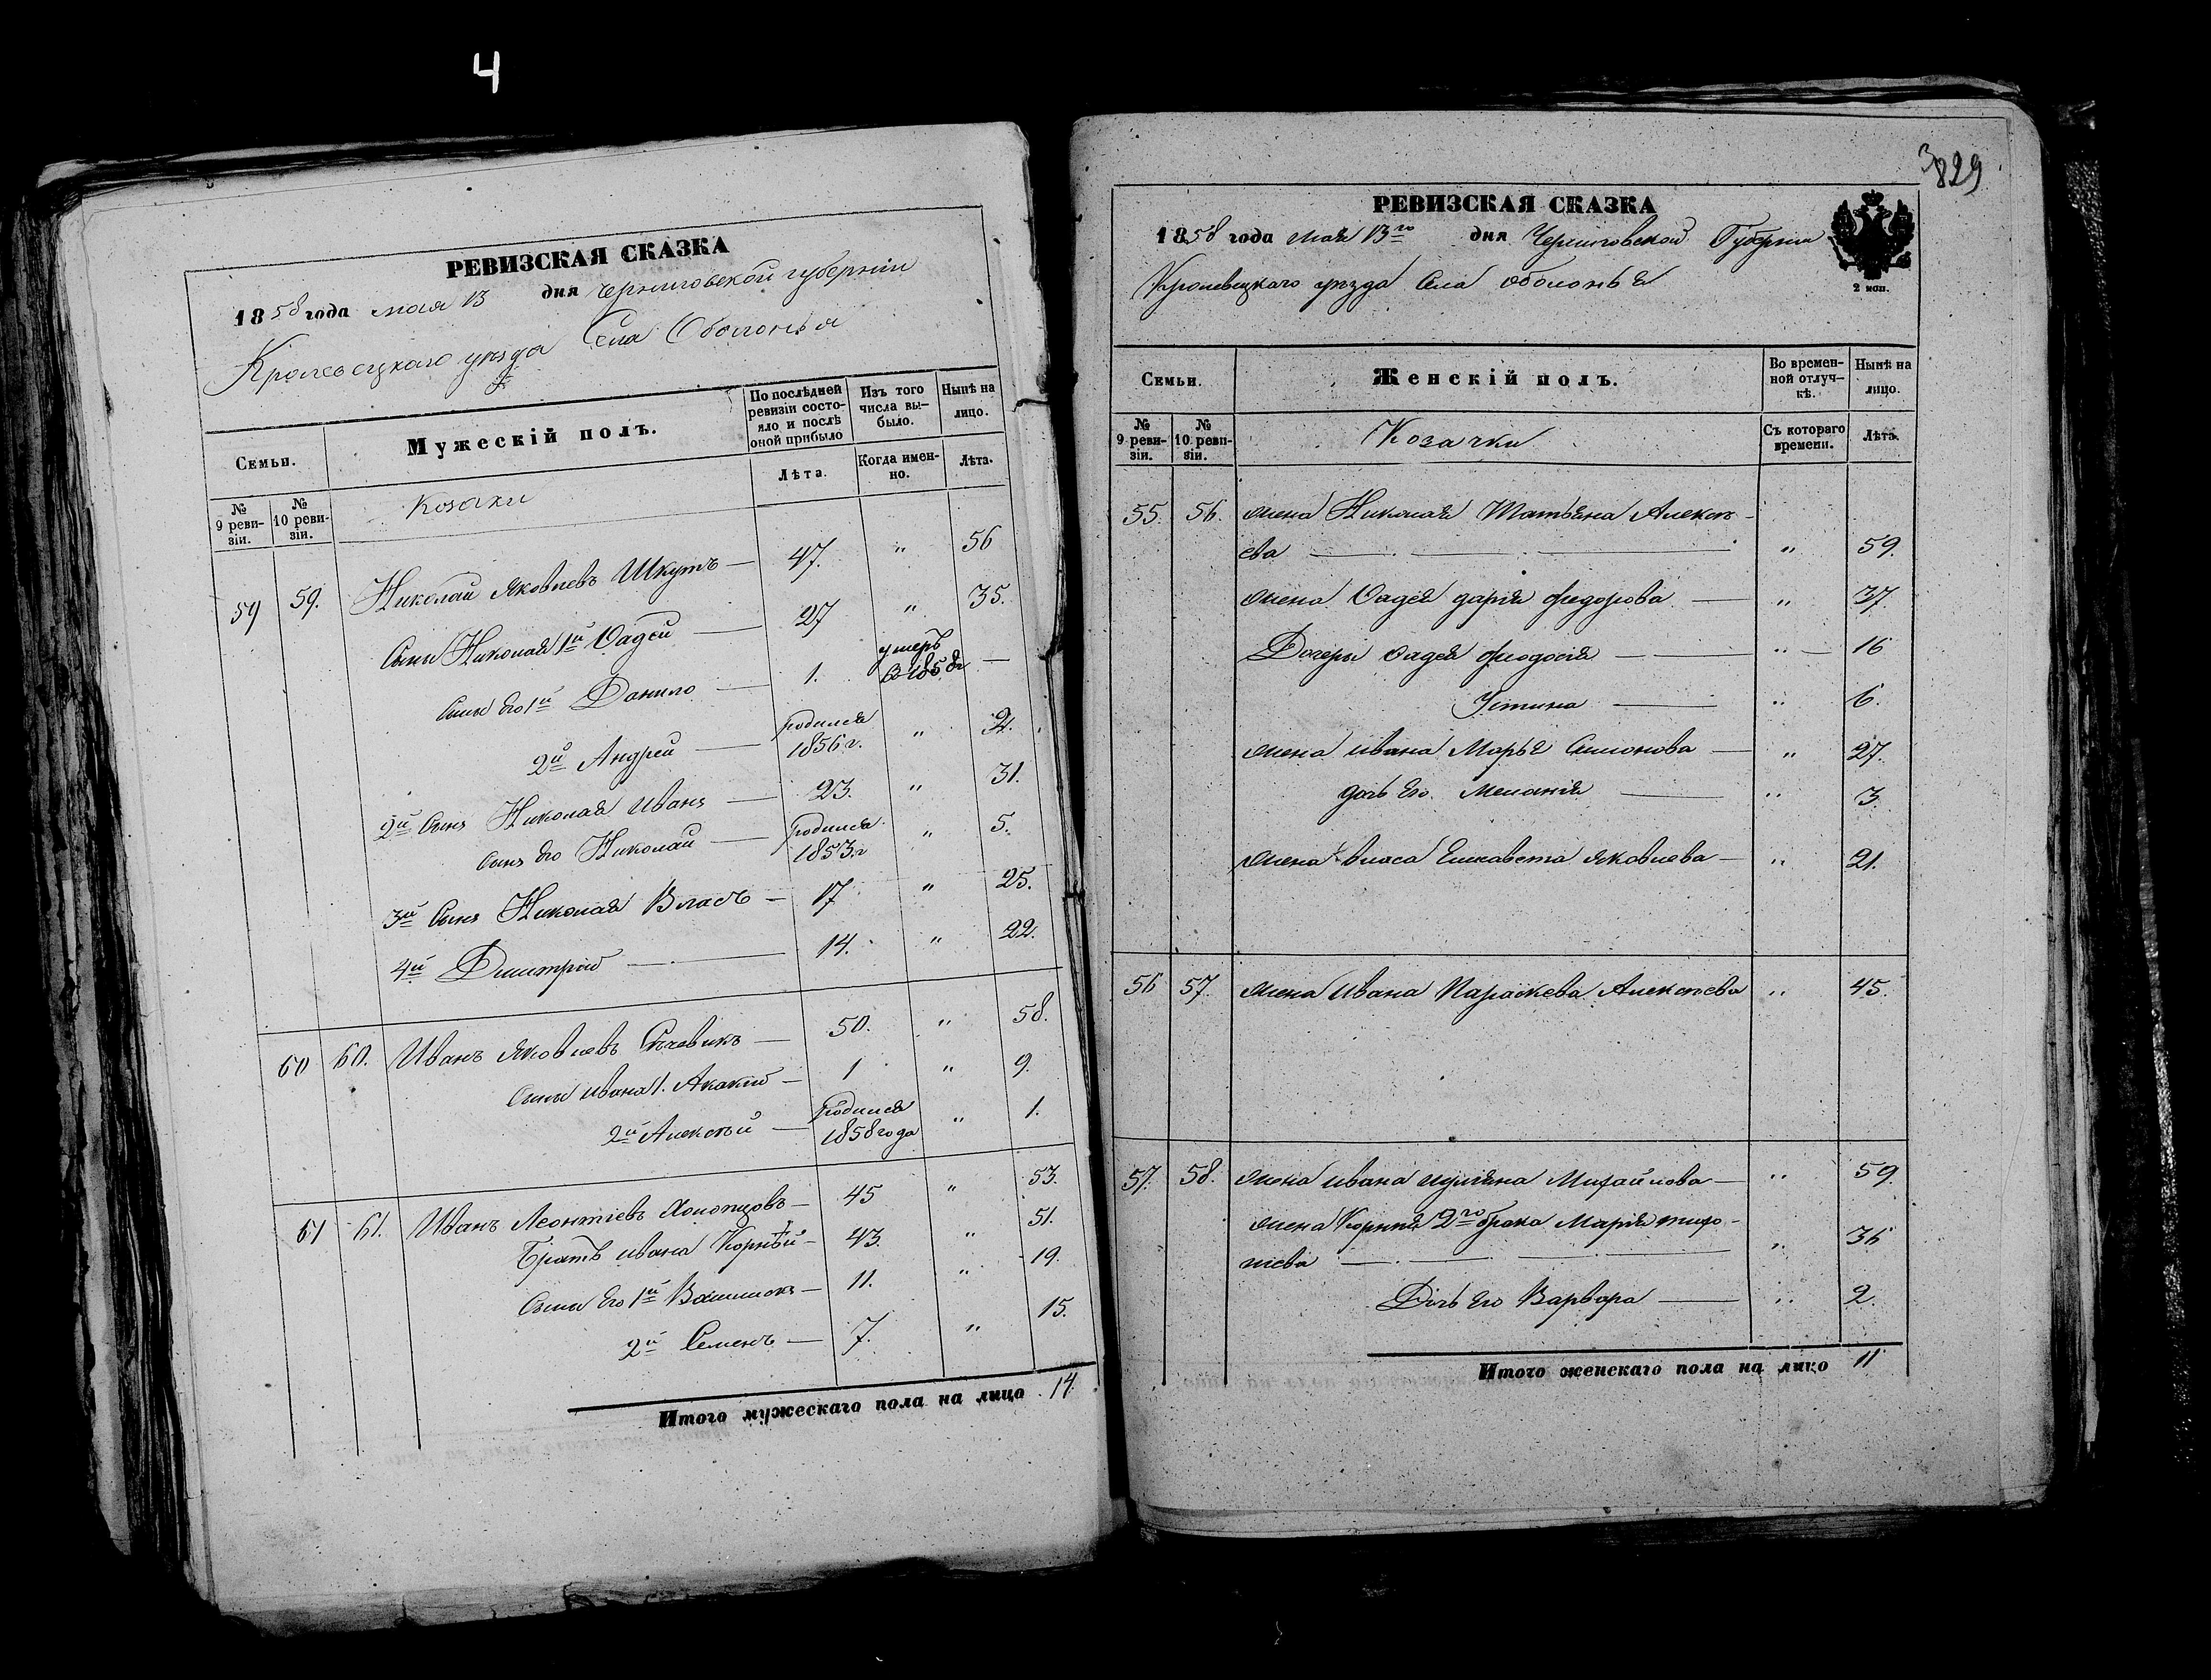 4
РЕВИЗСКАЯ СКАЗКА
1858 года мая 13 дня Черниговской губерніи
Кролевецкаго уезда Села Оболонья
Семьи.
Мужескій полъ.
По послѣдней ревизіи состояло и послѣ оной прибыло
Изъ того числа выбыло.
Нынѣ на лицо.
№ 9 ревизіи.
№ 10 ревизіи.
Козаки
Лѣта.
Когда именно.
Лѣта.
59 59. Николай Яковлевъ Шкутъ — 47. " 56
Сыны Николая 1й Фадей — 27 " 35.
Сыны его 1й Данило — 1. умеръ в 1858г —
2й Андрей — родился 1856 г. " 2.
2й Сынъ Николая Иванъ — 23. " 31.
Сынъ его Николай — родился 1853.г " 5.
3й Сынъ Николая Власъ — 17 " 25.
4й Дмитрій — 14. " 22.
60 60. Иванъ Яковлевъ — 50. " 58.
Сыны Ивана 1. Акакій — 1 " 9.
2й Алексѣй — родился 1858 года " 1.
61 61. Иванъ Леонтіевъ Холопцовъ — 45 " 53.
Братъ Ивана Корній — 43. " 51.
Сыны его 1й — 11. " 19.
2й Семенъ — 7. " 15.
Итого мужескаго пола на лицо 14
829
РЕВИЗСКАЯ СКАЗКА
1858 года мая 13го дня Черниговской Губерніи
Кролевецкаго уезда Села Оболонья
2 коп.
Семьи.
Женскій полъ.
Во временной отлучкѣ.
Нынѣ на лицо.
№ 9 ревизіи.
№ 10 ревизіи.
Козачки
Съ котораго времени.
Лѣта.
55. 56. жена Николая Татьяна Алексѣ-
ева — " 59.
жена Фадея дарія федорова — " 37.
Дочеры Фадея феодосія — " — 16
Устина — " 6.
жена ивана Марья Симонова — " 27.
дочь его Меланія — " 3.
жена власа Елисавета яковлева — " 21.
56 57. жена ивана Параскева Алексѣева " 45.
57. 58. жена ивана иулияна Михайлова — " 59.
жена Корнія 2го брака Марія тимо-
ѳеева — " 36
Дочь его Варвара — " 2.
Итого женскаго пола на лицо 11